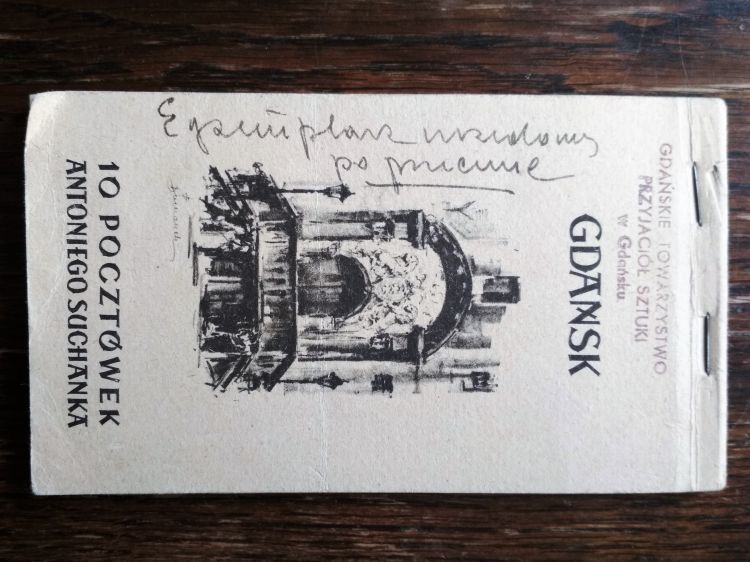 GDAŃSKIE TOWARZYSTWO
PRZYJACIÓŁ SZTUKI
w Gdańsku
GDAŃSK
Egzemplarz
po
10 POCZTÓWEK
ANTONIEGO SUCHANKA